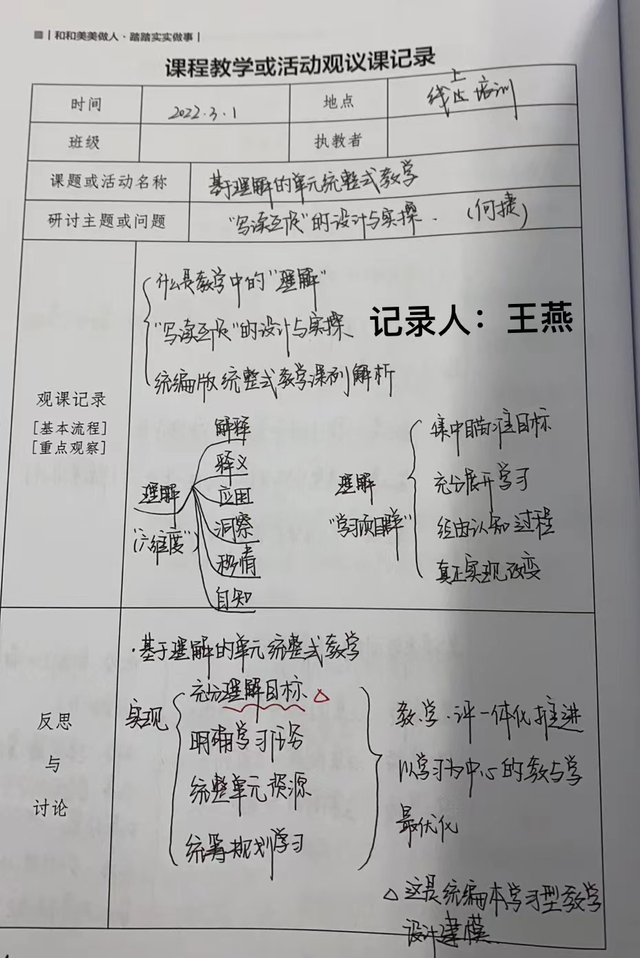 和和美美做人·踏踏实实做事
课程教学或活动观议课记录
时间 2022.3.1 地点 线上培训
班级 执教者
课题或活动名称 基于理解的单元统整式教学
研讨主题或问题 “写读互促”的设计与实操.(何捷)
观课记录
[基本流程]
[重点观察]
什么是教学中的“理解”
“写读互促”的设计与实操
统编版统整式教学课例解析
记录人：王燕
理解
“六维度”
解释
释义
应用
洞察
移情
自知
理解
“学习项目群”
集中瞄准目标
充分展开学习
经由认知过程
真正实现改变
反思
与
讨论
·基于理解的单元统整式教学
实现
充分理解目标 △
明确学习任务
统整单元资源
统筹规划学习
教·学·评一体化推进
以学习为中心的教与学
最优化
△这是统编本学习型教学
设计建模